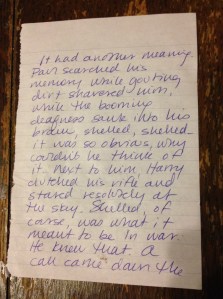 It had another meaning.
Paul searched his
memory while gouting
dirt showered him,
while the booming
deafness sank into his
brain, shelled, shelled
it was so obvious, why
couldn't he think of
it. Next to him, Harry
clutched his rifle and
stared resolutely at
the sky. Shelled, of
course, was what it
meant to be in war.
He knew that. A
call came down the